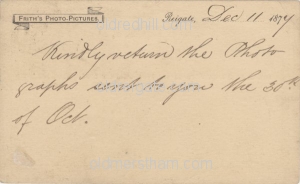 FRITH'S PHOTO-PICTURES.
Reigate, Dec 11 1874
Kindly return the Photo
graphs sent to you the 30th
of Oct.